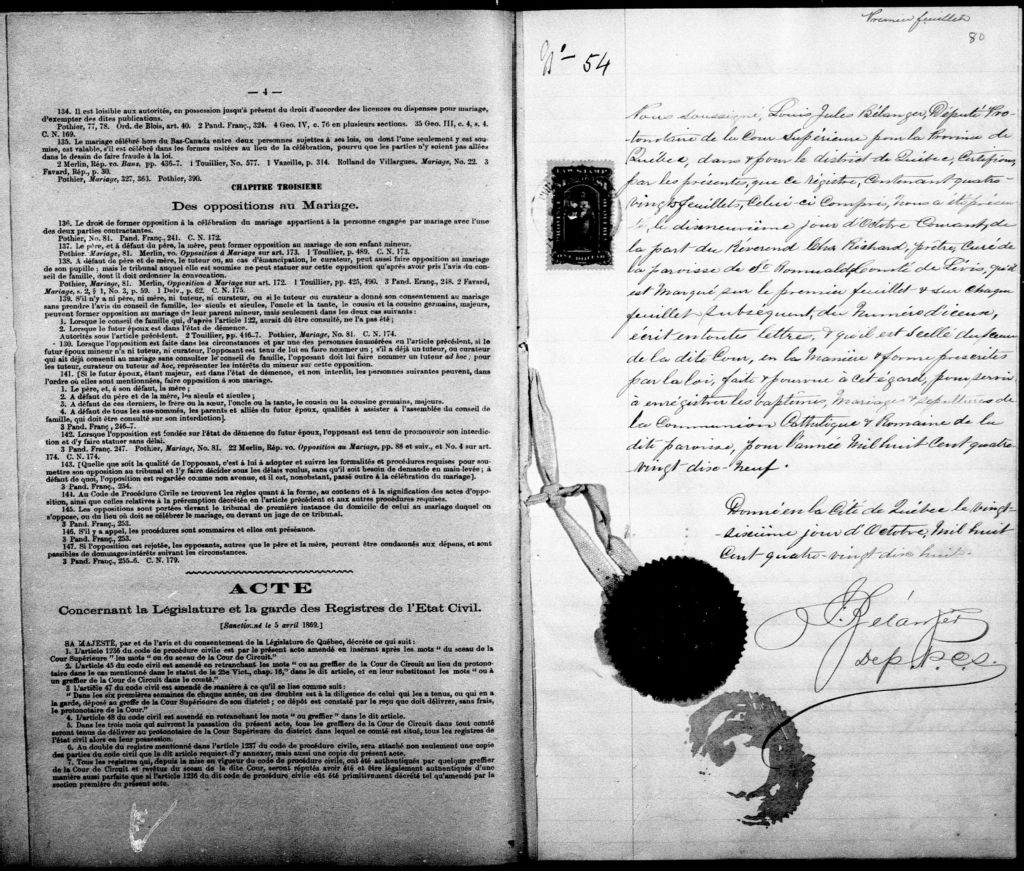 — 4 —
134. Il est loisible aux autorités, en possession jusqu'à présent du droit d'accorder des licences ou dispenses pour mariage,
d'exempter des dites publications.
Pothier, 77, 78. Ord. de Blois, art. 40. 2 Pand. Franç., 324. 4 Geo. IV, c. 76 en plusieurs sections. 35 Geo. III, c. 4, s. 4.
C. N. 169.
135. Le mariage célébré hors du Bas-Canada entre deux personnes sujettes à ses lois, ou dont l'une seulement y est sou-
mise, est valable, s'il est célébré dans les formes usitées au lieu de la célébration, pourvu que les parties n'y soient pas allées
dans le dessein de faire fraude à la loi.
2 Merlin, Rép. vo. Bans, pp. 436-7. 1 Touillier, No. 577. 1 Vazeille, p. 314. Rolland de Villargues. Mariage, No. 22. 3
Favard, Rép., p. 30.
Pothier, Mariage, 327, 361. Pothier, 390.
CHAPITRE TROISIEME
Des oppositions au Mariage.
136. Le droit de former opposition à la célébration du mariage appartient à la personne engagée par mariage avec l'une
des deux parties contractantes.
Pothier, No. 81. Pand. Franç., 241. C. N. 172.
137. Le père, et à défaut du père, la mère, peut former opposition au mariage de son enfant mineur.
Pothier, Mariage, 81. Merlin, vo. Opposition à Mariage sur art. 173. 1 Touillier, p. 489. C. N. 173.
138. A défaut de père et de mère, le tuteur ou, au cas d'émancipation, le curateur, peut aussi faire opposition au mariage
de son pupille; mais le tribunal auquel elle est soumise ne peut statuer sur cette opposition qu'après avoir pris l'avis du con-
seil de famille, dont il doit ordonner la convocation.
Pothier, Mariage, 81. Merlin, Opposition à Mariage sur art. 172. 1 Touillier, pp. 425, 490. 3 Pand. Franç., 248. 2 Favard,
Mariage, s. 2, § 1, No. 3, p. 59. 1 Delv., p. 62. C. N. 175.
139. S'il n'y a ni père, ni mère, ni tuteur, ni curateur, ou si le tuteur ou curateur a donné son consentement au mariage
sans prendre l'avis du conseil de famille, les aïeuls et aïeules, l'oncle et la tante, le cousin et la cousine germains, majeurs,
peuvent former opposition au mariage de leur parent mineur, mais seulement dans les deux cas suivants :
1. Lorsque le conseil de famille qui, d'après l'article 122, aurait dû être consulté, ne l'a pas été ;
2. Lorsque le futur époux est dans l'état de démence.
Autorités sous l'article précédent. 2 Touillier, pp. 446-7. Pothier, Mariage, No. 81. C. N. 174.
130. Lorsque l'opposition est faite dans les circonstances et par une des personnes énumérées en l'article précédent, si le
futur époux mineur n'a ni tuteur, ni curateur, l'opposant est tenu de lui en faire nommer un ; s'il a déjà un tuteur, ou curateur
qui ait déjà consenti au mariage sans consulter le conseil de famille, l'opposant doit lui faire nommer un tuteur ad hoc ; pour
les tuteur, curateur ou tuteur ad hoc, représenter les intérêts du mineur sur cette opposition.
141. [Si le futur époux, étant majeur, est dans l'état de démence, et non interdit, les personnes suivantes peuvent, dans
l'ordre où elles sont mentionnées, faire opposition à son mariage.
1. Le père, et, à son défaut, la mère ;
2. A défaut du père et de la mère, les aïeuls et aïeules ;
3. A défaut de ces derniers, le frère ou la sœur, l'oncle ou la tante, le cousin ou la cousine germains, majeurs.
4. A défaut de tous les sus-nommés, les parents et alliés du futur époux, qualifiés à assister à l'assemblée du conseil de
famille, qui doit être consulté sur son interdiction].
3 Pand. Franç., 246-7.
142. Lorsque l'opposition est fondée sur l'état de démence du futur époux, l'opposant est tenu de promouvoir son interdic-
tion et d'y faire statuer sans délai.
3 Pand. Franç. 247. Pothier, Mariage, No. 81. 22 Merlin, Rép. vo. Opposition au Mariage, pp. 88 et suiv., et No. 4 sur art.
174. C. N. 174.
143. [Quelque soit la qualité de l'opposant, c'est à lui à adopter et suivre les formalités et procédures requises pour sou-
mettre son opposition au tribunal et l'y faire décider sous les délais voulus, sans qu'il soit besoin de demande en main-levée ; à
défaut de quoi, l'opposition est regardée comme non avenue, et il est, nonobstant, passé outre à la célébration du mariage].
3 Pand. Franç., 254.
144. Au Code de Procédure Civile se trouvent les règles quant à la forme, au contenu et à la signification des actes d'oppo-
sition, ainsi que celles relatives à la péremption décrétée en l'article précédent et aux autres procédures requises.
145. Les oppositions sont portées devant le tribunal de première instance du domicile de celui au mariage duquel on
s'oppose, ou du lieu où doit se célébrer le mariage, ou devant un juge de ce tribunal.
3 Pand. Franç., 253.
146. S'il y a appel, les procédures sont sommaires et elles ont préséance.
3 Pand. Franç., 253.
147. Si l'opposition est rejetée, les opposants, autres que le père et la mère, peuvent être condamnés aux dépens, et sont
passibles de dommages-intérêts suivant les circonstances.
3 Pand. Franç., 255-6. C. N. 179.
ACTE
Concernant la Législature et la garde des Registres de l'Etat Civil.
[Sanctionné le 5 avril 1869.]
SA MAJESTÉ, par et de l'avis et du consentement de la Législature de Québec, décrète ce qui suit :
1. L'article 1236 du code de procédure civile est par le présent acte amendé en insérant après les mots " du sceau de la
Cour Supérieure " les mots " ou du sceau de la Cour de Circuit."
2. L'article 45 du code civil est amendé en retranchant les mots " ou au greffier de la Cour de Circuit au lieu du protono-
taire dans le cas mentionné dans le statut de la 25e Vict., chap. 16," dans le dit article, et en leur substituant les mots " ou à
un greffier de la Cour de Circuit dans le comté."
3 L'article 47 du code civil est amendé de manière à ce qu'il se lise comme suit :
" Dans les six premières semaines de chaque année, un des doubles est à la diligence de celui qui les a tenus, ou qui en a
la garde, déposé au greffe de la Cour Supérieure de son district ; ce dépôt est constaté par le reçu que doit délivrer, sans frais,
le protonotaire de la Cour."
4. L'article 48 du code civil est amendé en retranchant les mots " ou greffier " dans le dit article.
5. Dans les trois mois qui suivront la passation du présent acte, tous les greffiers de la Cour de Circuit dans tout comté
seront tenus de délivrer au protonotaire de la Cour Supérieure du district dans lequel ce comté est situé, tous les registres de
l'état civil alors en leur possession.
6. Au double du registre mentionné dans l'article 1237 du code de procédure civile, sera attaché non seulement une copie
des parties du code civil que le dit article requiert d'y annexer, mais aussi une copie du présent acte.
7. Tous les registres qui, depuis la mise en vigueur du code de procédure civile, ont été authentiqués par quelque greffier
de la Cour de Circuit et revêtus du sceau de la dite Cour, seront réputés avoir été et être légalement authentiqués d'une
manière aussi parfaite que si l'article 1236 du dit code de procédure civile eût été primitivement décrété tel qu'amendé par la
section première du présent acte.
Premier feuillet
80
No 54
LAW STAMP
Nous soussigné, Louis Jules Bélanger, Député Pro-
tonotaire de la Cour Supérieure pour la Province de
Québec, dans & pour le district de Québec, Certifions
par les présentes, que ce régistre, Contenant quatre-
vingts feuillets, Celui-ci Compris, nous a été présen-
té, le dixneuvième jour d'Octobre Courant, de
la part du Révérend Chs Richard, prêtre, Curé de
la paroisse de St Romuald, Comté de Lévis, qu'il
est Marqué sur le premier feuillet & sur Chaque
feuillet subséquent, du Numéro dicelui,
écrit en toutes lettres, & qu'il est scellé du sceau
de la dite Cour, en la Manière & forme prescrites
par la loi, faite & pourvue à cet égard, pour servir
à enrégistrer les baptêmes, Mariages & Sépultures de
la Communion Catholique & Romaine de la
dite paroisse, pour l'année Mil huit Cent quatre
vingt dix-neuf.
Donné en la Cité de Québec le vingt-
sixième jour d'Octobre, Mil huit
Cent quatre-vingt dix huit.
J. Bélanger
Dep. P.C.S.